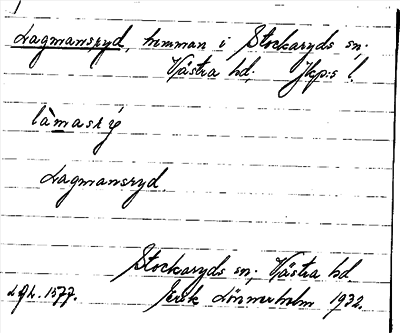 Lagmansryd, hemman i Stockaryds sn;
Västra hd; Jkp:s l.
làmasrý
Lagmansryd.
Stockaryds sn; Västra hd
Erik Lönnerholm 1932.